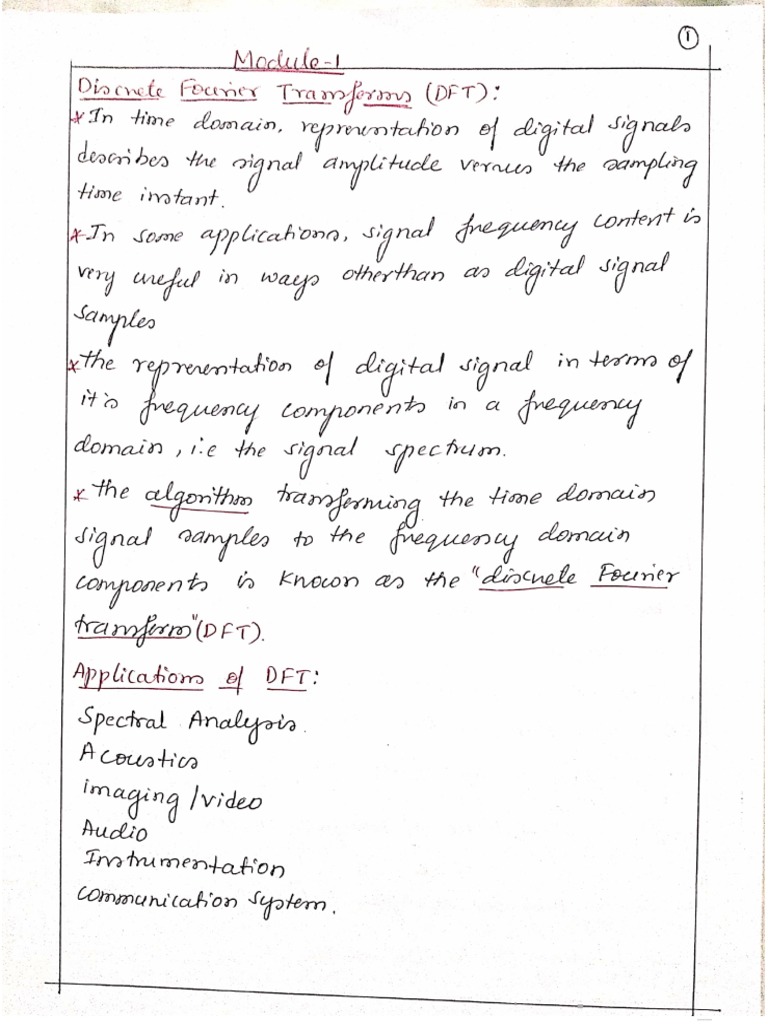 1
Module-1
Discrete Fourier Transforms (DFT):
* In time domain, representation of digital signals
describes the signal amplitude versus the sampling
time instant.
* In some applications, signal frequency content is
very useful in ways otherthan as digital signal
samples
* the representation of digital signal in terms of
it's frequency components in a frequency
domain, i.e the signal spectrum.
* the algorithm transforming the time domain
signal samples to the frequency domain
components is known as the "discrete Fourier
transform" (DFT).
Applications of DFT:
Spectral Analysis.
Acoustics
imaging /video
Audio
Instrumentation
communication system.